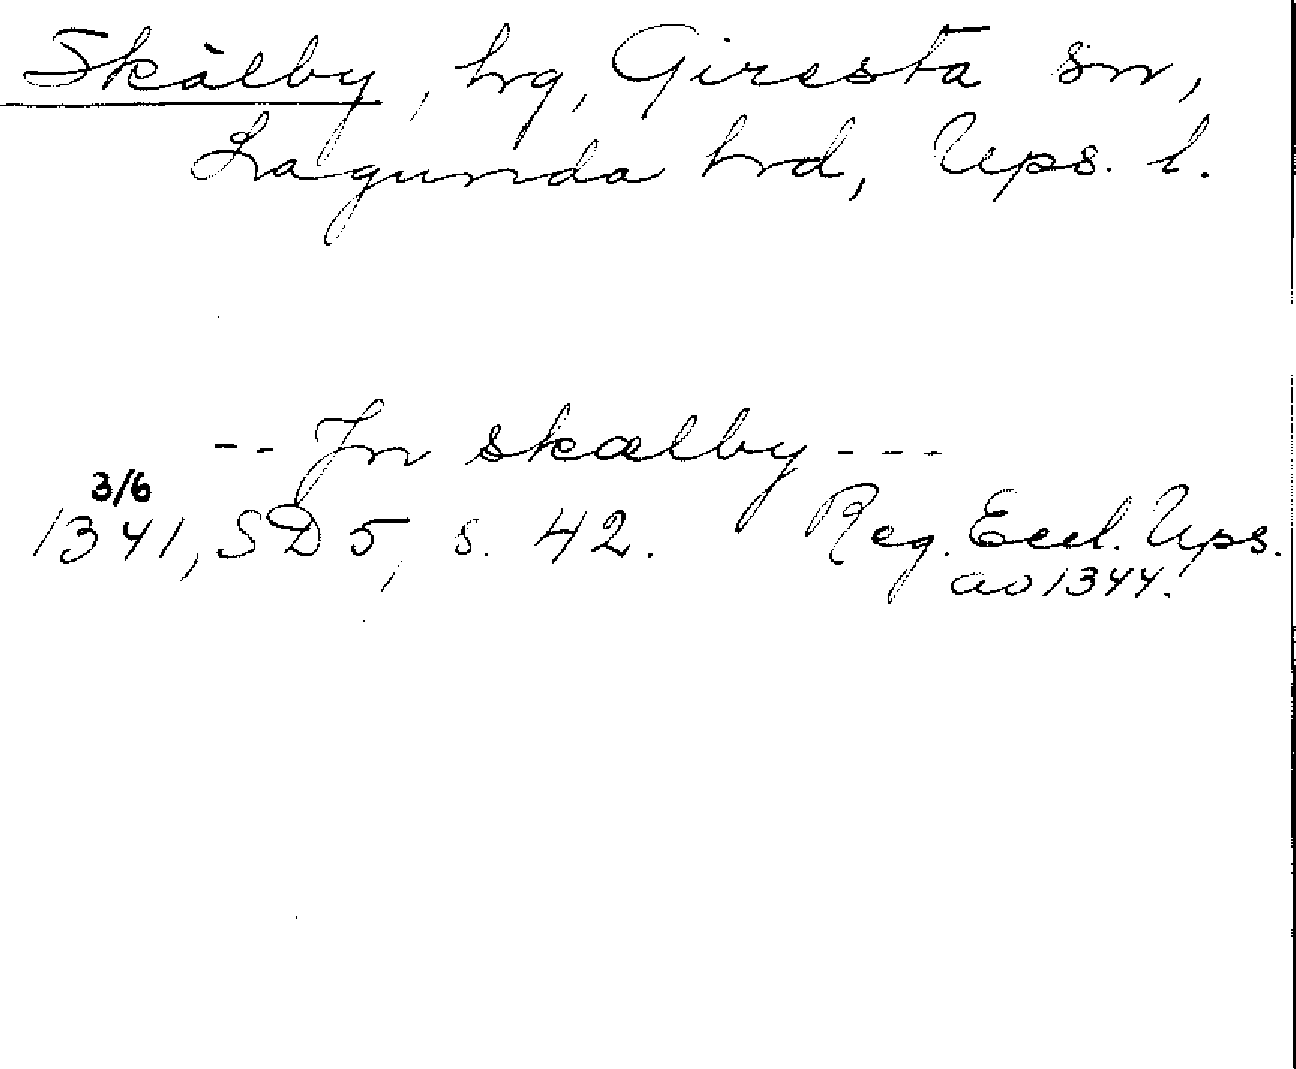 Skälby, hg, Giresta sn,
Lagunda hd, Ups. l.
-- Jn skælby ---
3/6
1341, SD 5, s. 42. Reg. Eccl. Ups.
ao 1344.